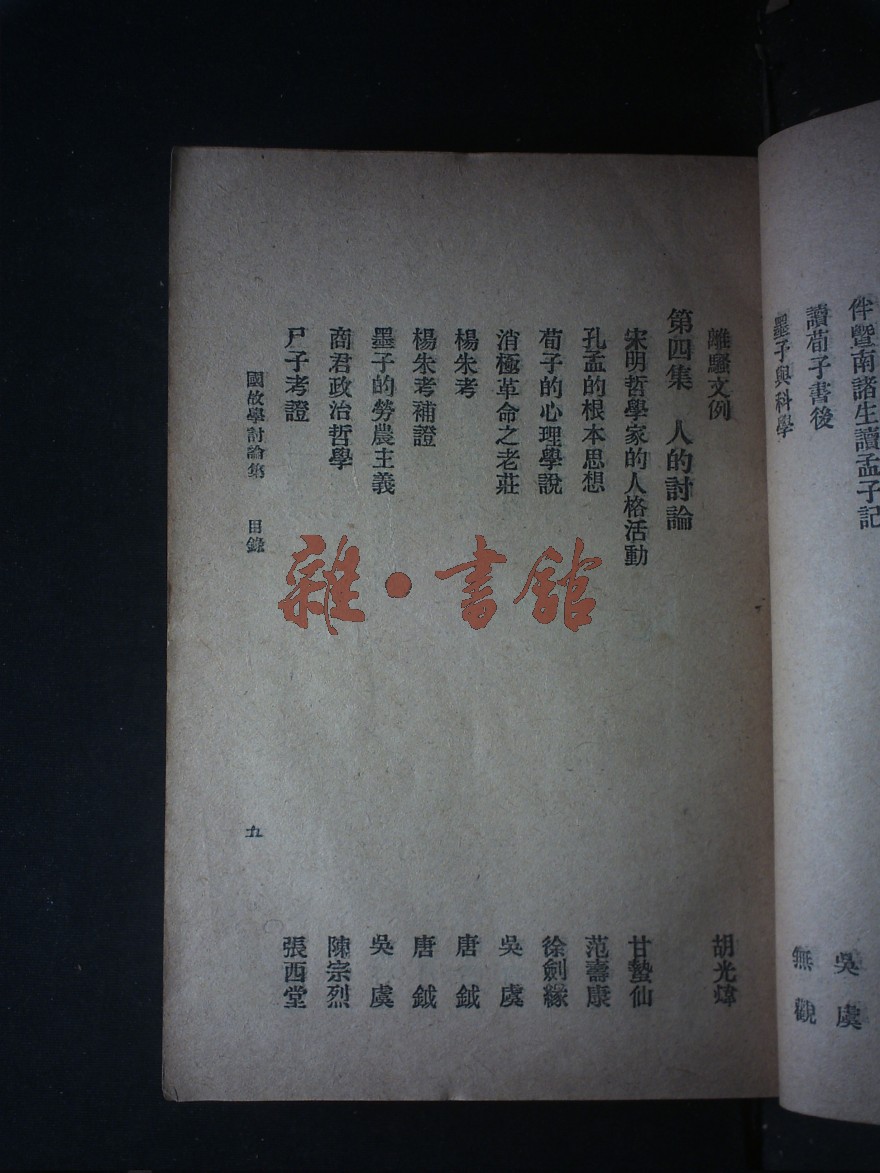 伴暨南諸生讀孟子記
吳虞
讀荀子書後
無觀
墨子與科學
離騷文例 胡光煒
第四集 人的討論
宋明哲學家的人格活動 甘蟄仙
孔孟的根本思想 范壽康
荀子的心理學說 徐劍緣
消極革命之老莊 吳虞
楊朱考 唐鉞
楊朱考補證 唐鉞
墨子的勞農主義 吳虞
商君政治哲學 陳宗烈
尸子考證 張西堂
國故學討論集 目錄 五
雜·書館